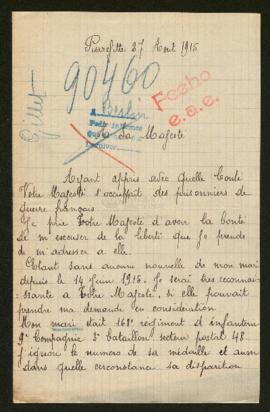 Pierrefitte 27 Aout 1915
Gillet
90460
Berlin
Fecho
e.a.e.
Sa Majesté
Ayant appris avec quelle bonté
Votre Majesté s'occupait des prisonniers de
Guerre français
Je prie Votre Majesté d'avoir la bonté
de m'excuser de la liberté que je prends
de m'adresser a elle.
Etant sans aucune nouvelle de mon mari
depuis le 14 Juin 1915. Je serai très reconnais
sante a Votre Majesté, si elle pouvait
prendre ma demande en considération
Mon mari était 168e régiment d infanterie
9e Compagnie 3e bataillon secteur postal 48
J ignore le numero de sa médaille et aussi
dans quelle circonstance sa disparition